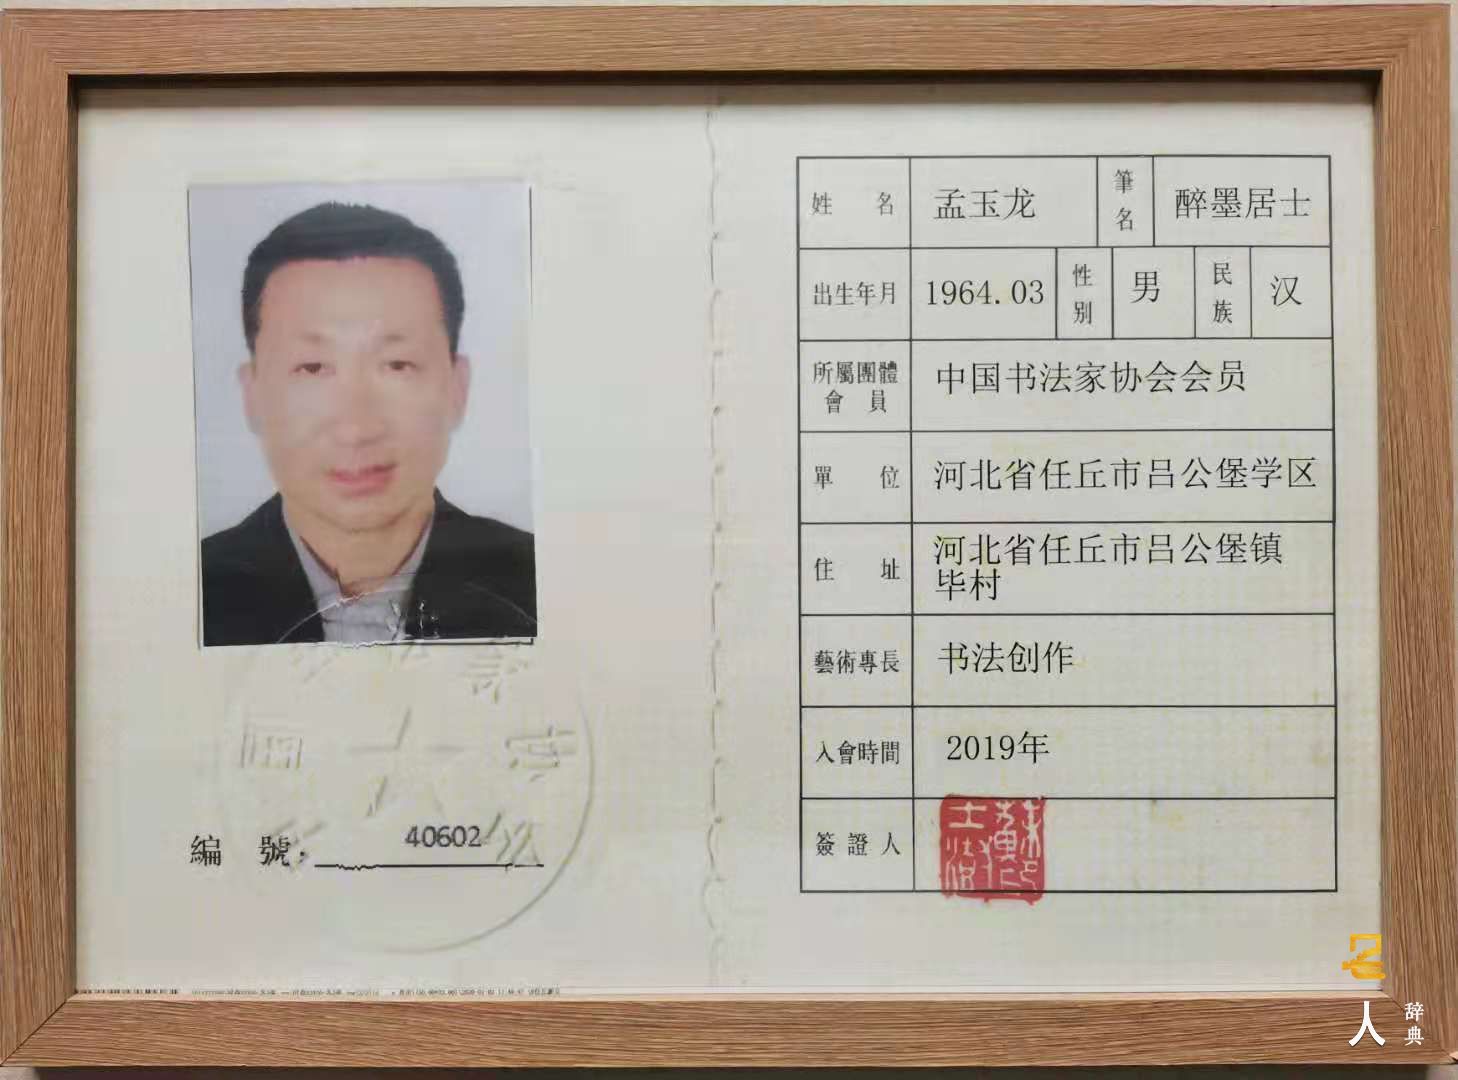 編 號: 40602
姓 名 孟玉龙 筆名 醉墨居士
出生年月 1964.03 性别 男 民族 汉
所屬團體
會 員 中国书法家协会会员
單 位 河北省任丘市吕公堡学区
住 址 河北省任丘市吕公堡镇
毕村
藝術專長 书法创作
入會時間 2019年
簽證人
人 辞典